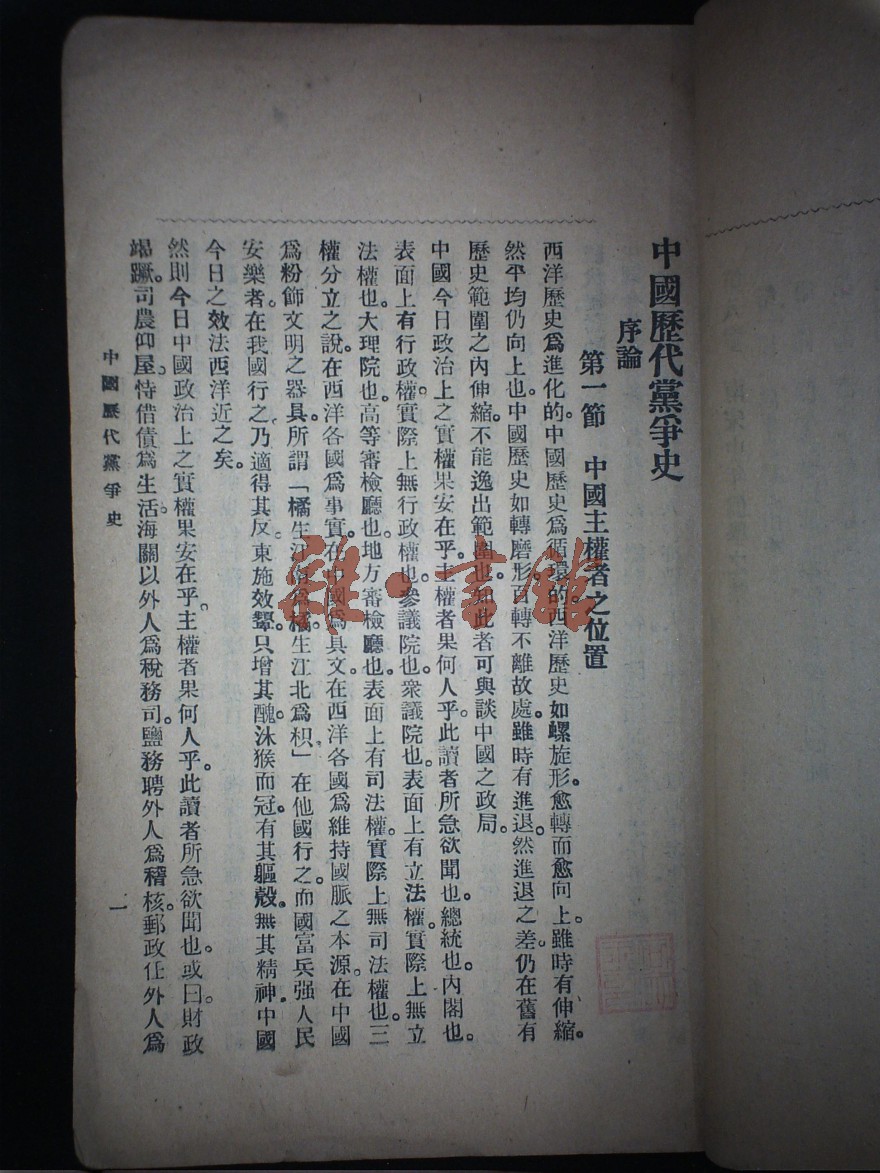 中國歷代黨爭史
序論
第一節　中國主權者之位置
西洋歷史爲進化的。中國歷史爲循環的。西洋歷史如螺旋形。愈轉而愈向上。雖時有伸縮。
然平均仍向上也。中國歷史如轉磨形。百轉不離故處。雖時有進退。然進退之差。仍在舊有
歷史範圍之內伸縮。不能逸出範圍也。知此者可與談中國之政局。
中國今日政治上之實權果安在乎。主權者果何人乎。此讀者所急欲聞也。總統也。內閣也。
表面上有行政權。實際上無行政權也。參議院也。衆議院也。表面上有立法權。實際上無立
法權也。大理院也。高等審檢廳也。地方審檢廳也。表面上有司法權。實際上無司法權也。三
權分立之說。在西洋各國爲事實。在中國爲具文。在西洋各國爲維持國脈之本源。在中國
爲粉飾文明之器具。所謂「橘生江南爲橘。生江北爲枳」在他國行之。而國富兵强人民
安樂者。在我國行之。乃適得其反。東施效顰。只增其醜。沐猴而冠。有其軀殼。無其精神。中國
今日之效法西洋近之矣。
然則今日中國政治上之實權果安在乎。主權者果何人乎。此讀者所急欲聞也。或曰。財政
竭蹶。司農仰屋。恃借債爲生活。海關以外人爲稅務司。鹽務聘外人爲稽核。郵政任外人爲
中國歷代黨爭史
一
雜·書館